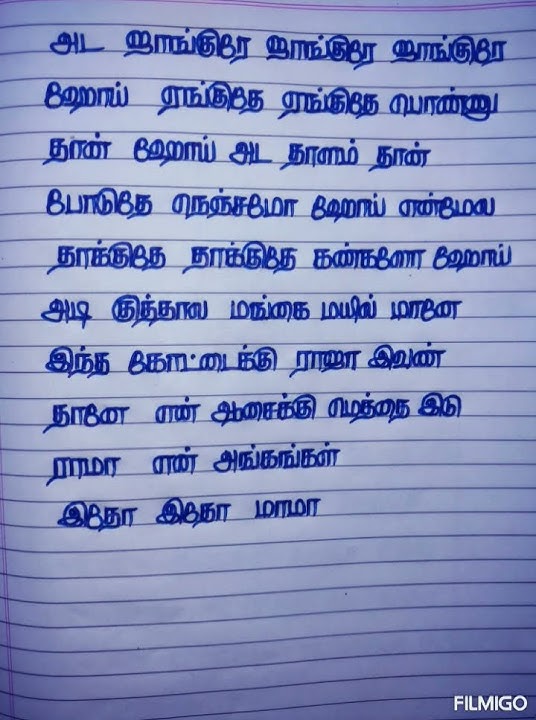 அட ஜாங்குரே ஜாங்குரே ஜாங்குரே
ஹோய் ஏங்குதே ஏங்குதே பொண்ணு
தான் ஹோய் அட தாளம் தான்
போடுதே நெஞ்சமோ ஹோய் என்மேல
தாக்குதே தாக்குதே கண்களோ ஹோய்
அடி குத்தால மங்கை மயில் மானே
இந்த கோட்டைக்கு ராஜா இவண்
தானே என் ஆசைக்கு மெத்தை இடு
ராமா என் அங்கங்கள்
இதோ இதோ மாமா
FILMIGO